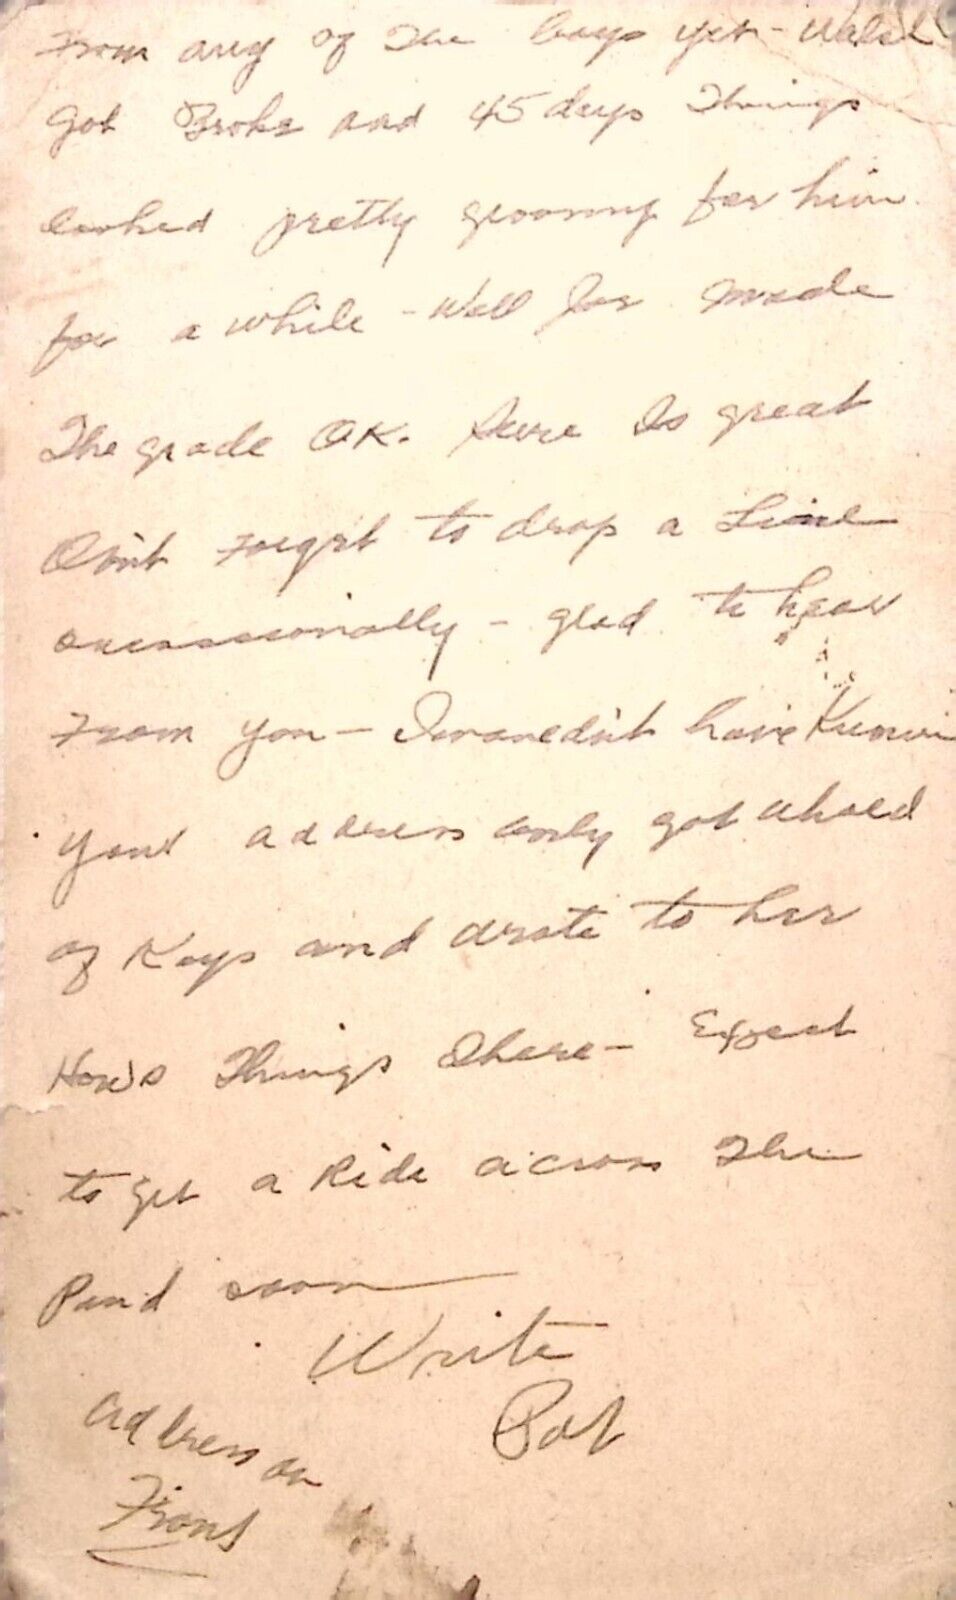 From any of The boys yet - Walsh
got Broke and 45 days Things
looked pretty gloomy for him
for a while - Well Joe made
The grade OK. Sure Is great
Don't Forget to drop a Line
occassionally - glad to hear
From you - I wouldn't have Known
your address only got ahold
of Kays and wrote to her
How's Things There - Expect
to get a Ride across The
Pond soon
Write
Pat
address on
Front